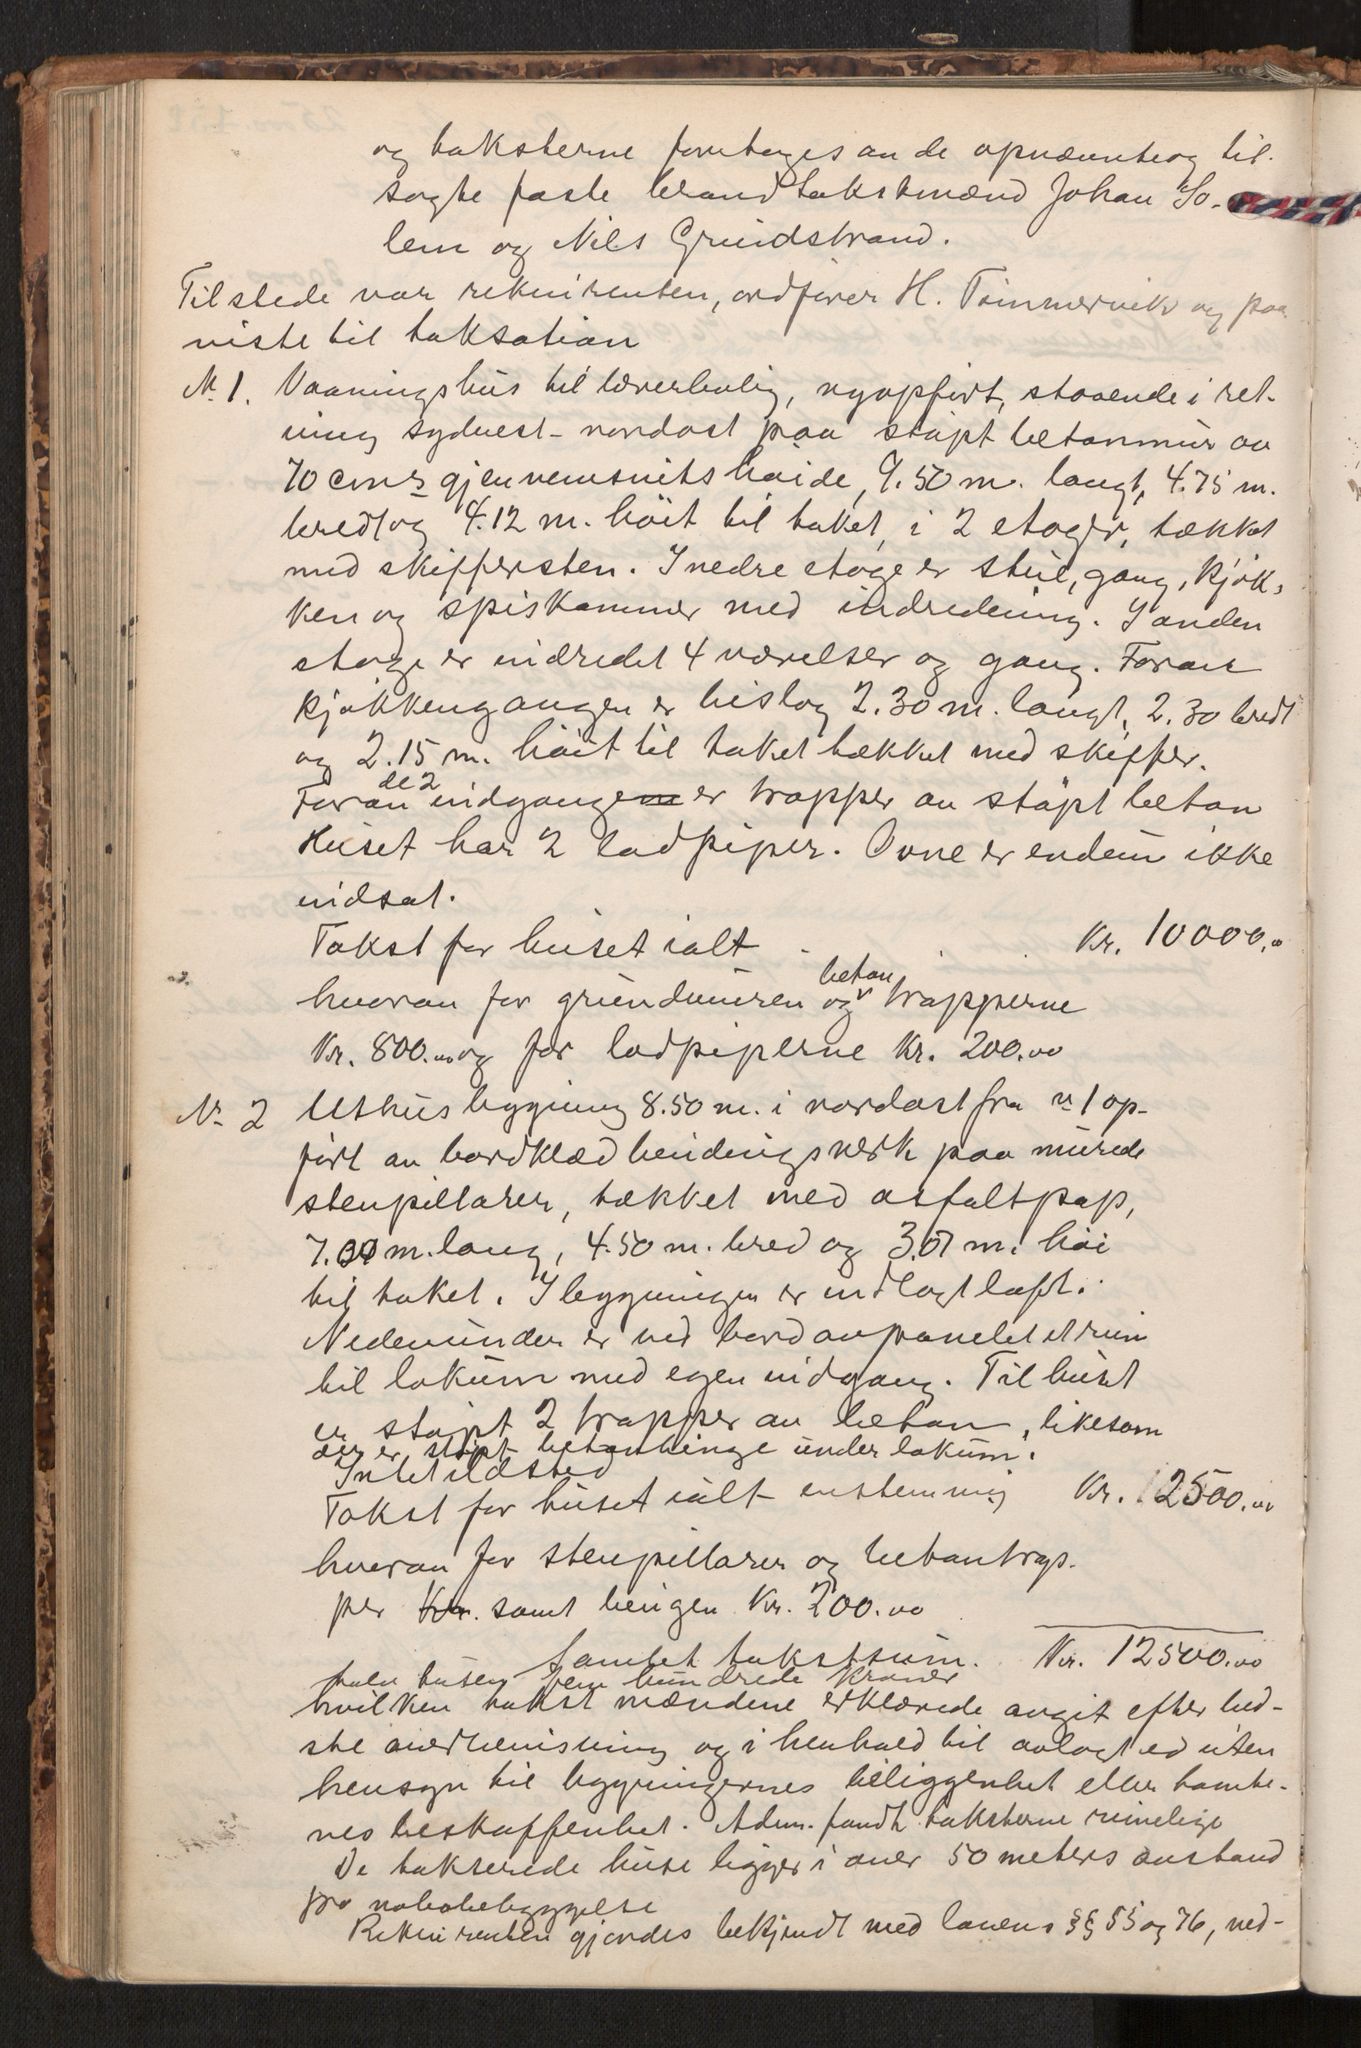 og taksterne foretages av de opnævnte og til-
sagte faste brandtakstmænd Johan So-
lem og Nils Grindstrand.
Tilstede var rekvirenten, ordfører H. Timmervik og paa-
viste til taksation
No 1. Vaaningshus til lærerbolig, nyopført, staaende i ret-
ning sydvest-nordost paa støpt betonmur av
70 cm's gjennemsnits høide, 9.50 m. langt, 4.75 m.
bredt og 4.12 m. höit til taket, i 2 etager, tækket
med skiffersten. I nedre etage er stue, gang, kjøk-
ken og spiskammer med indredning. I anden
etage er indredet 4 værelser og gang. Foran
kjøkkengangen er bislag 2.30 m. langt, 2.30 bredt
og 2.15 m. höit til taket tækket med skiffer.
Foran de 2 indgangene er trapper av støpt beton
Huset har 2 lodpiper. Ovne er endnu ikke
indsat.
Takst for huset ialt Kr. 10000.00
hvorav for grundmuren og beton trapperne
Kr. 800.00 og for lodpiperne Kr. 200.00
No 2 Uthusbygning 8.50 m. i nordost fra no 1 op-
ført av bordklæd bindingsverk paa murede
stenpillarer, tækket med asfaltpap,
7.00 m. lang, 4.50 m. bred og 3.07 m. høi
til taket. I bygningen er indlagt loft.
Nedenunder er ved bord avpanelet et rum
til lokum med egen indgang. Til huset
er støpt 2 trapper av beton, likesom
der er støpt betonbinge under lokum.
Intet ildsted
Takst for huset ialt enstemmig Kr. 2500.00
hvorav for stenpillarer og betontrap-
per Kr. samt bingen Kr. 200.00
Samlet takstsum. Kr. 12500.00
tolv tusen fem hundrede kroner
hvilken takst mændene erklærede avgit efter bed-
ste overbevisning og i henhold til avlagt ed uten
hensyn til bygningernes beliggenhet eller tomte-
nes beskaffenhet. Adm. fandt taksterne rimelige
De takserede huse ligger i over 50 meters avstand
fra nabobebyggelse
Rekvirenten gjordes bekjendt med lovens §§ 55 og 76, ved-